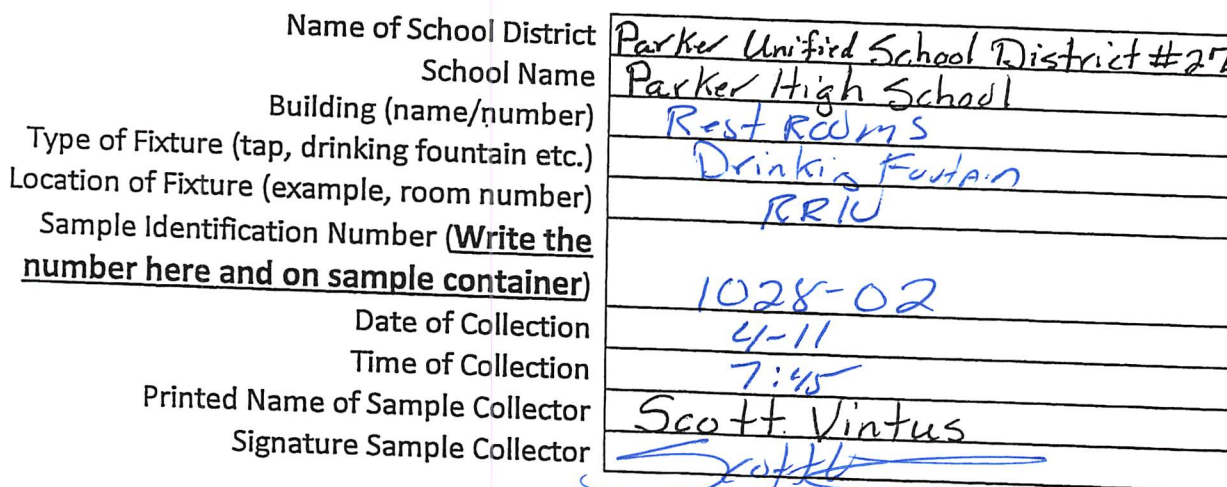 Name of School District Parker Unified School District #27
School Name Parker High School
Building (name/number) Rest Rooms
Type of Fixture (tap, drinking fountain etc.) Drinking Foutain
Location of Fixture (example, room number)
Sample Identification Number (Write the
number here and on sample container) 1028-02
Date of Collection 4-11
Time of Collection 7:45
Printed Name of Sample Collector Scott Vintus
Signature Sample Collector